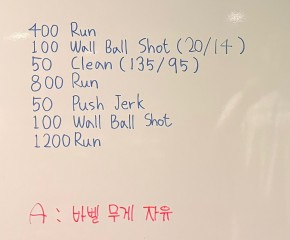 400 Run
100 Wall Ball Shot (20/14)
50 Clean (135/95)
800 Run
50 Push Jerk
100 Wall Ball Shot
1200 Run
A : 바벨 무게 자유